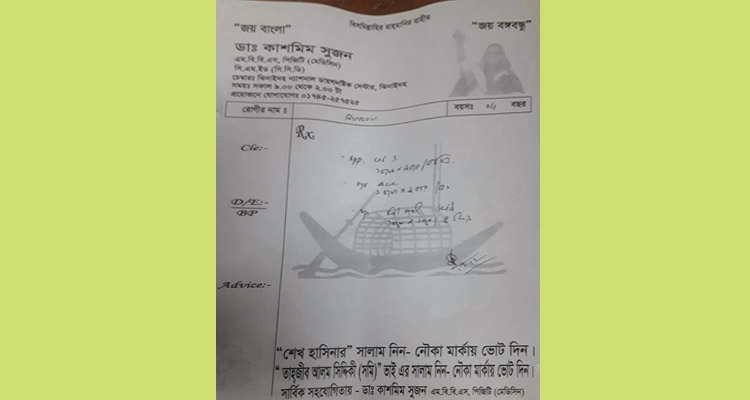 বিসমিল্লাহির রাহ্মানির রাহীম
“জয় বাংলা” “জয় বঙ্গবন্ধু”
ডাঃ কাশমিম সুজন
এম.বি.বি.এস, পিজিটি (মেডিসিন)
সি.এম.ইউ (সি.সি.ডি)
চেম্বারঃ ঝিনাইদহ ন্যাশনাল ডায়াগনষ্টিক সেন্টার, ঝিনাইদহ
সময়ঃ সকাল ৯.০০ থেকে ২.০০ টা
প্রয়োজনে যোগাযোগঃ ০১৭৪৫-২৫৭৫২৫
রোগীর নাম ঃ বয়সঃ বছর
Rx.
C/c:-
D/E:-
BP
Advice:-
“শেখ হাসিনার” সালাম নিন- নৌকা মার্কায় ভোট দিন।
“তাহ্জীব আলম সিদ্দিকী (সমি)” ভাই এর সালাম নিন- নৌকা মার্কায় ভোট দিন।
সার্বিক সহযোগিতায় - ডাঃ কাশমিম সুজন এম.বি.বি.এস, পিজিটি (মেডিসিন)